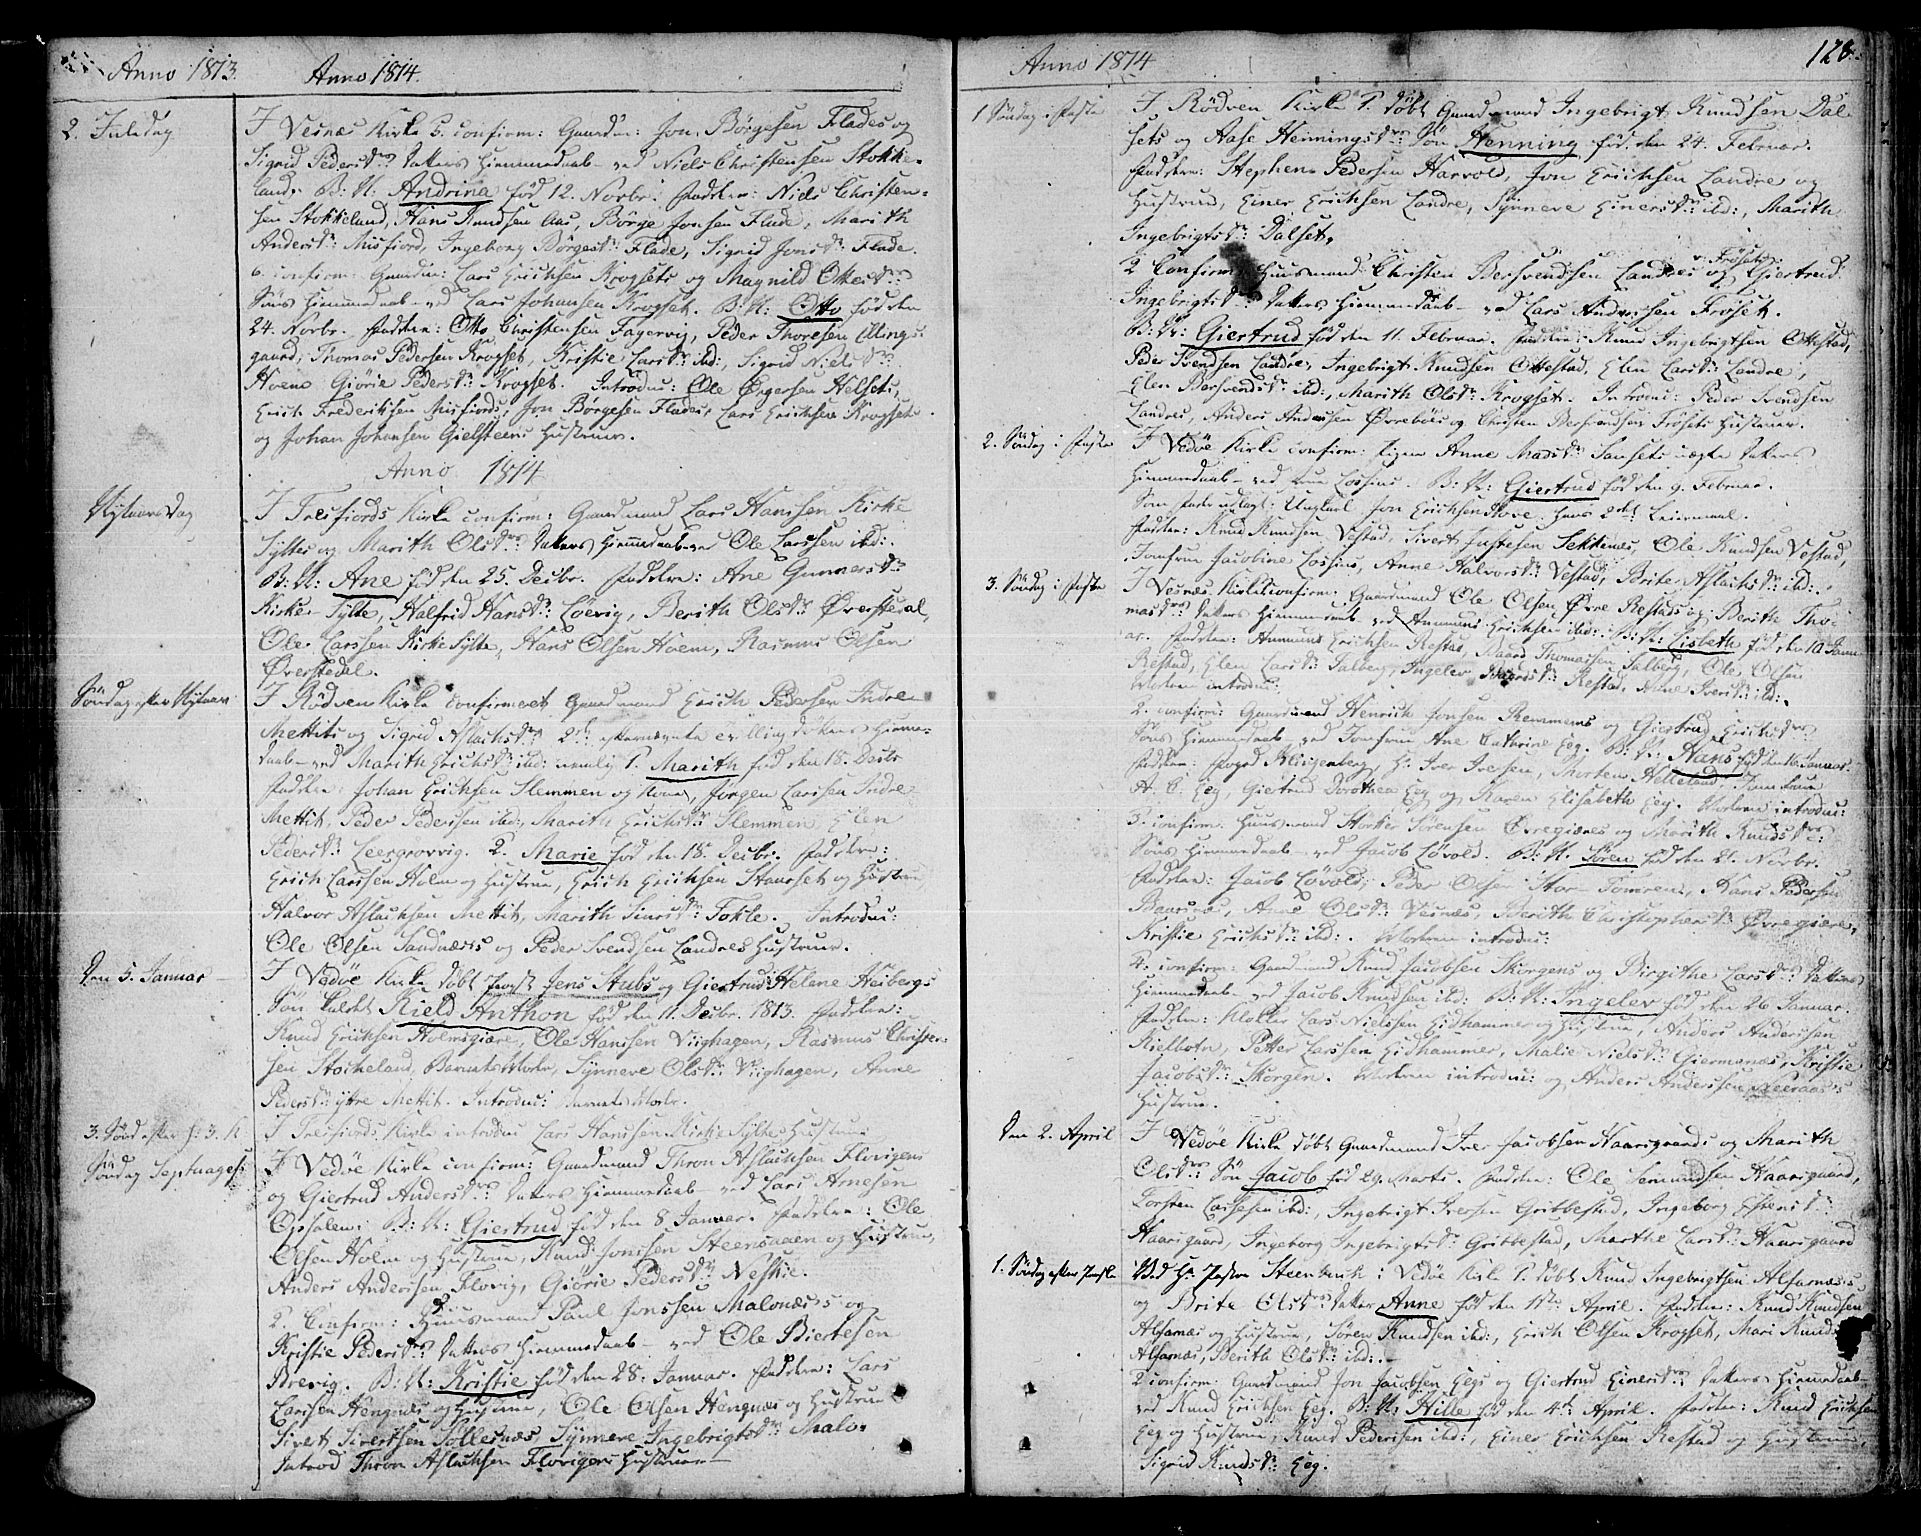 Anno 1813. Anno 1814.
2. Juledag
I Vesnæs Kirke 5. confirm: Gaardm: Jon Børgesen Flades og
Sigrid Pedersdrs Datters Hiemmedaab ved Niels Christensen Stokke-
land. B: N: Andrina fød 12. Novbr. Faddere: Niels Christen-
sen Stokkeland, Hans Knudsen Aas, Børge Jonsen Flade, Marith
Andersdr Misfiord, Ingeborg Børgesdr Flade, Sigrid Jonsdr Flade.
6. confirm: Gaardm: Lars Erichsen Krogsets og Magnild Ottesdrs
Søns Hiemmedaab ved Lars Johansen Krogset. B: N: Otto fød den
24. Novbr. Faddere: Otto Christensen Fagervig, Peder Thoresen Villings-
gaard, Thomas Pedersen Krogset, Kristie Larsdr ibd:, Sigrid Nielsdr
Hoem Giørie Pedersdr Krogset. Introduc: Ole Øvgersen Helsets,
Erich Frederiksen Misfiords, Jon Børgesen Flades, Lars Erichsen Krogsets
og Johan Johansen Gielsteens Hustruer.
Anno 1814
Nytaarsdag
I Tresfiords Kirke confirm: Gaardmand Lars Hanssen Kirke
Syltes og Marith Olsdrs Datters Hiemmedaab ved Ole Larssen ibd:
B: N: Ane fød den 25. Decbr. Faddere: Ane Gunnersdr
Kirke Sylte, Halfrid Hansdr Løevig, Berith Olsdr Øverstedal,
Ole Larssen Kirke Sylte, Hans Olsen Hoem, Rasmus Olsen
Øverstedal.
Søndag efter Nytaar
I Rødven Kirke confirmeret Gaardmand Erich Pedersen Indre
Mettets og Sigrid Aslachsdrs 2de efternævnte Tvilling døttres Hiemme-
daab ved Marith Erichsdr ibd: nemlig 1. Marith fød den 18. Decbr
Faddere: Johan Erichsen Slemmen og Kone, Jørgen Larsen Indre
Mettit, Peder Pedersen ibd:, Marith Erichsdr Slemmen, Elen
Pedersdr Leergrovvig. 2. Marie fød den 18. Decbr. Faddere:
Erich Larssen Holm og Hustrue, Erich Erichsen Staurset og Hustrue,
Halvor Aslachsen Mettit, Marith Simsdr Tokle. Introduc:
Ole Olsen Sandnæs og Peder Svendsen Landres Hustruer.
Den 5. Januar
I Vedøe Kirke døbt Provst Jens Stubs og Giertrud Helene Heibergs
Søn kaldet Kield Anthon fød den 11. Decbr. 1813. Faddere:
Knud Erichsen Holmsgiære, Ole Hansen Viighagen, Rasmus Christen-
sen Stocheland, Barnets Moder, Synnere Olsdr Viighagen, Anne
Pedersdr ytre Mettit. Introduc: Barnets Moder.
3. Sønd efter H: 3. K
I Tresfiords Kirke introduc Lars Hanssen Kirke Syltes Hustrue
Søndag Septuages:
I Vedøe Kirke confirm: Gaardmand Thron Aslachsen Flovigens
og Giertrud Andersdrs Datters Hiemmedaab ved Lars Arnesen
Opsalen: B: N: Giertrud fød den 8 Januar. Faddere: Ole
Olsen Holm og Hustrue, Knud Jonssen Steensaaen og Hustrue,
Anders Andersen Flovig, Giørie Pedersdr Neskie.
2. Confirm: Huusmand Paul Jonssen Malonæsses og
Kristie Pedersdrs Datters Hiemmedaab ved Ole Biertesen
Brevig. B: N: Kristie fød den 28. Januar. Faddere: Lars
Larssen Hengnæs og Hustrue, Ole Olsen Hengnæs og Hustrue
Sivert Sivertsen Søllesnæs, Synnere Ingebrigtsdr Malo-
Introd Thron Aslachsen Flovigens Hustrue
Anno 1814
128.
1 Søndag i Faste
I Rødven Kirke 1. døbt Gaardmand Ingebrigt Knudsen Dal-
sets og Aase Henningsdrs Søn Henning fød den 24. Februar.
Faddere: Stephen Pedersen Harvold, Jon Erichsen Landre og
Hustrue, Einer Erichsen Landre, Synnere Einersdr ibd:, Marith
Ingebrigtsdr Dalset.
v. Frøset
2 Confirm: Huusmand Christen Bersvendsen Landres og Giertrud
Ingebrigtsdrs Datters Hiemmedaab ved Lars Andersen Frøset.
B: N: Giertrud fød den 11. Februar. Faddere: Knud Ingebrigtsen Ottestad,
Peder Svendsen Landre, Ingebrigt Knudsen Ottestad, Elen Larsdr Landre,
Elen Bersvendsdr ibd:, Marith Olsdr Krogset. Introduc: Peder Svendsen
Landres, Anders Andersen Øvrebøes og Christen Bersvendsen Frøsets Hustruer.
2. Søndag i Faste
I Vedøe Kirke confirm: Pigen Anne Madsdr Sansets uægte Datters
Hiemmedaab ved Lossius. B: N: Giertrud fød den 9. Februar.
Som Fader udlagt: Ungkarl Jon Erichsen Hove hans 2det Leiermaal.
Faddere: Knud Knudsen Vestad, Sivert Justesen Sekkenæs, Ole Knudsen Vestad,
Jomfrue Jacobine Lossius, Anne Halvorsdr Vestad, Brite Aslachsdr ibd:
3. Søndag i Faste
I Vesnæs Kirke 1 confirm: Gaardmand Ole Olsen Øvre Restads og Berith Tho-
masdrs Datters Hiemmedaab ved Ammund Erichsen ibd: B: N: Lisbeth fød den 10 Janu-
ar. Faddere: Ammund Erichsen Restad, Baard Thomassen Salberg, Ole Olsen
Restad, Elen Larsdr Salberg, Ingelev Baardsdr Restad, Anne Iversdr ibd:
Moderen introduc:
2. confirm: Gaardmand Henrich Jonsen Remmems og Giertrud Erichsdrs
Søns Hiemmedaab ved Jomfrue Ane Cathrine Eeg. B: N: Hans fød den 16 Januar.
Faddere: Fogd Klingenberg, Hr Iver Iversen, Morten Hilleland, Jomfrue
A. C. Eeg, Giertrud Dorothea Eeg og Karen Elisabeth Eeg. Moderen introduc:
3. confirm. Huusmand Størker Sørensen Øvregiæres og Marith Knudsdrs
Søns Hiemmedaab ved Jacob Løvold. B: N: Søren fød den 21. Novbr.
Faddere: Jacob Løvold, Peder Olsen Stor-Tomren, Hans Pedersen
Baarsnæs, Anne Olsdr Vesnæs, Berith Christophersdr Øvregiære,
Kristie Erichsdr ibd: Moderen introduc:
4. confirm: Gaardmand Knud Jacobsen Skorgens og Birgithe Larsdrs Datters
Hiemmedaab ved Jacob Knudsen ibd: B: N: Ingelev fød den 26 Januar.
Faddere: Klokker Lars Nielsen Eidhammer og Hustrue, Anders Andersen
Kielbotn, Petter Larssen Eidhammer, Malie Nielsdr Giermanæs, Kristie
Jacobsdr Skorgen. Moderen introduc: og Anders Andersen Neeraases
Hustrue.
Den 2. April
I Vedøe Kirke døbt Gaardmand Iver Jacobsen Haarsgaards og Marith
Olsdrs Søn Jacob fød 29. Marts. Faddere: Ole Semundsen Haarsgaard,
Torsten Lassesen ibd:, Ingebrigt Iversen Gribbestad, Ingeborg Estensdr
Haarsgaard, Ingeborg Ingebrigtsdr Gribbestad, Marthe Larsdr Haarsgaard
1. Søndag efter Paaske
Ved Hr Pastor Steenbuch i Vedøe Kirke 1. døbt Knud Ingebrigtsen Alfarnæs
og Brite Olsdrs Datter Anne fød den 11te April. Faddere: Knud Knudsen
Alfarnæs og Hustrue, Søren Knudsen ibd:, Erich Olsen Krogset, Mari Knudsdr
Alfarnæs, Berith Olsdr ibd:.
2 confirm: Gaardmand Jon Jacobsen Eegs og Giertrud Einersdrs Datters Hiemmedaab
ved Knud Erichsen Eeg. B: N: Hille fød den 4de April. Faddere: Knud Erichsen
Eeg og Hustrue, Knud Pedersen ibd:, Einer Erichsen Restad og Hustrue,
Sigrid Knudsdr Eeg.